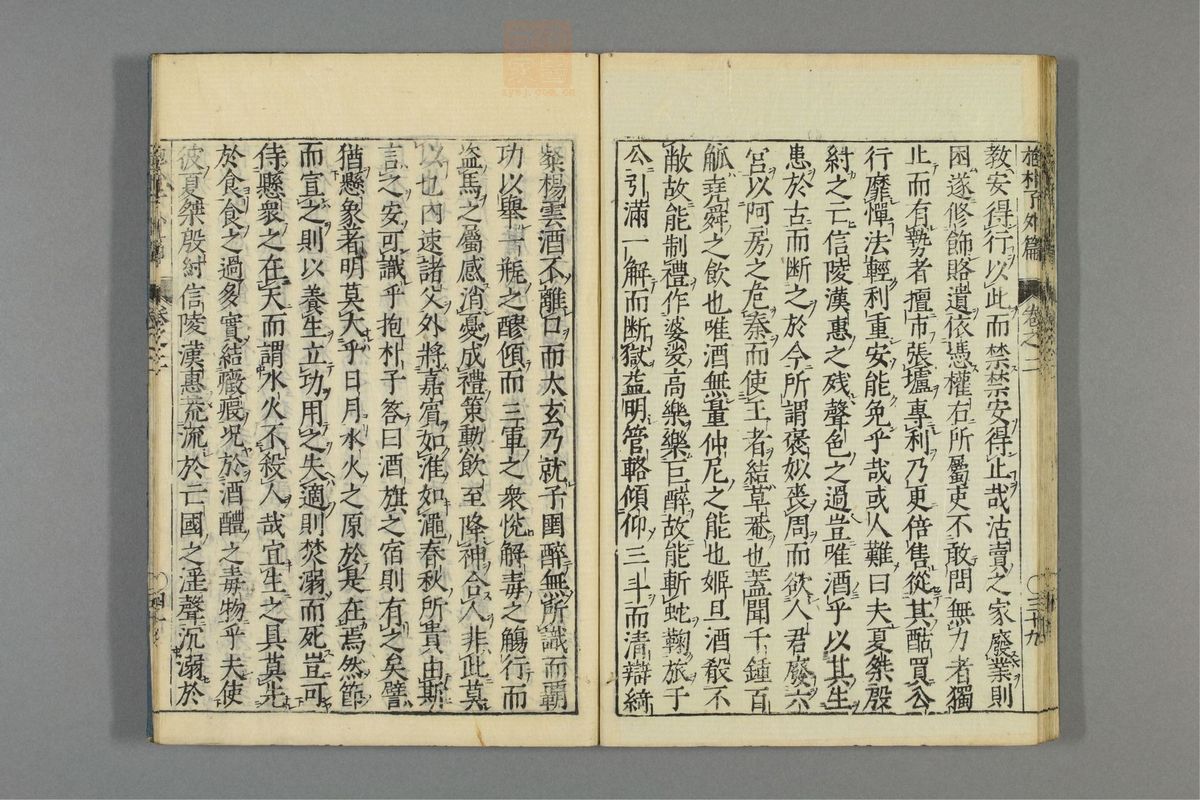 抱朴子外篇 卷之二 〇三十九
教安得行以此而禁禁安得止哉沽賣之家廢業則
困遂修飾賂遺依憑權右所屬吏不敢問無力者獨
止而有勢者擅市張壚專利乃更倍售從其酤買公
行靡憚法輕利重安能免乎哉或人難曰夫夏桀殷
紂之亡信陵漢惠之殘聲色之過豈唯酒乎以其生
患於古而断之於今所謂褒姒喪周而欲人君廢六
宮以阿房之危秦而使王者結草菴也蓋聞千鍾百
觚堯舜之飲也唯酒無量仲尼之能也姬旦酒殽不
敵故能制禮作
高樂樂巨醉故能斬蛇鞠旅于
公引滿一斛而断獄益明管輅傾仰三斗而清辯綺
粲楊雲酒不離口而太玄乃就子圉醉無所識而霸
功以舉一瓶之醪傾而三軍之衆悅解毒之觴行而
盜馬之屬感消憂成禮策勲飲至降神合人非此莫
以也內速諸父外將嘉賓如淮如澠春秋所貴由斯
言之安可識乎抱朴子答曰酒旗之宿則有之矣譬
猶懸象者明莫大乎日月水火之原於是在焉然節
而宜之則以養生立功用之失適則焚溺而死豈可
侍懸衆之在天而謂水火不殺人哉宜生之具莫先
於食食之過多實結癥瘕況於酒醴之毒物乎夫使
彼夏桀殷紂信陵漢惠荒流於亡國之淫聲沉溺於